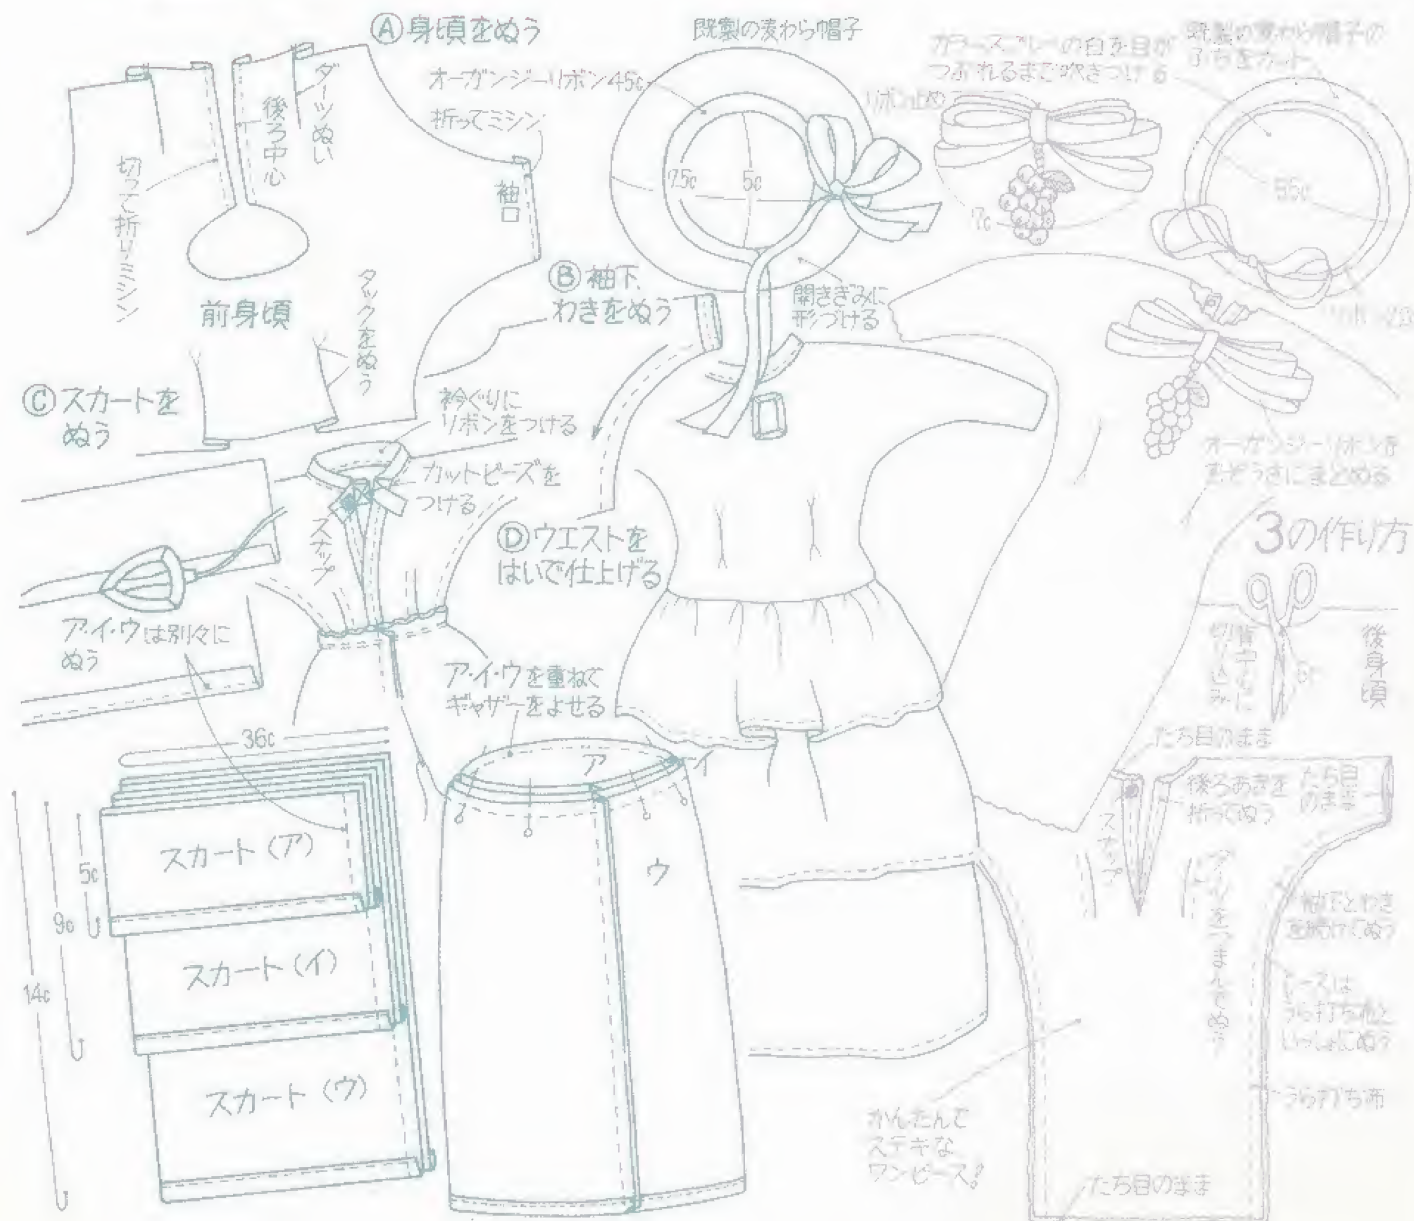 Ⓐ身頃をぬう
ダーツぬい
後ろ中心
切って折りミシン
前身頃
タックをぬう
オーガンジーリボン45c
折ってミシン
袖口
既製の麦わら帽子
7.5c
5c
開きぎみに
形づける
カラースプレーの白を目が
つぶれるまで吹きつける
リボン止め
7c
既製の麦わら帽子の
ふちをカット
オーガンジーリボンを
むぞうさにまとめる
Ⓑ袖下、
わきをぬう
Ⓒスカートを
ぬう
衿ぐりに
リボンをつける
カットビーズを
つける
スナップ
ア・イ・ウは別々に
ぬう
Ⓓウエストを
はいで仕上げる
ア・イ・ウを重ねて
ギャザーをよせる
ア
イ
ウ
36c
5c
9c
14c
スカート(ア)
スカート(イ)
スカート(ウ)
3の作り方
後身頃
背中心に
切り込み
たち目のまま
後ろあきを
折ってぬう
たち目
のまま
スナップ
ダーツをつまんでぬう
袖下とわき
を続けてぬう
レースは
うら打ち布と
いっしょにぬう
うら打ち布
かんたんで
ステキな
ワンピース!
たち目のまま